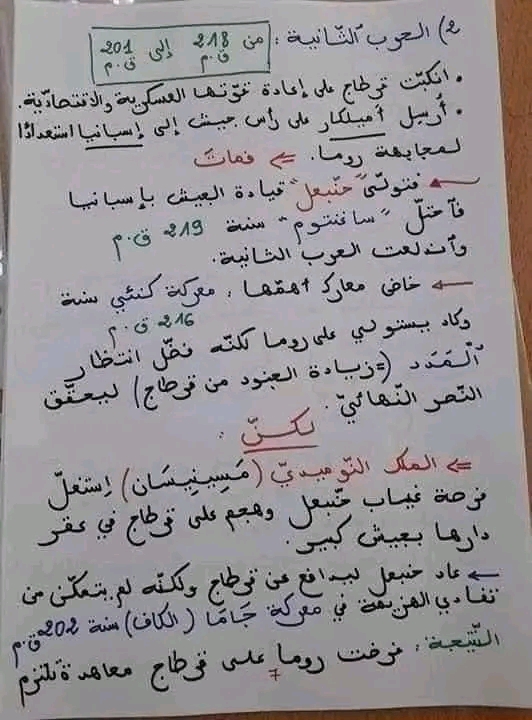 2) الحرب الثّانية : من 218 ق.م إلى 201 ق.م
• انكبّت قرطاج على إعادة قوّتها العسكرية والاقتصاديّة.
• أُرسِل أميلكار على رأس جيش إلى إسبانيا استعدادًا
لمجابهة روما. ⇐ فمات
← فتولّى "حنّبعل" قيادة الجيش بإسبانيا
فاحتلّ "ساغنتوم" سنة 219 ق.م
واندلعت الحرب الثانية.
← خاض معارك أهمّها : معركة كنّئي سنة
216 ق.م
وكاد يستولي على روما لكنّه فضّل انتظار
الْمَدَد (= زيادة الجنود من قرطاج) ليحقّق
النصر النّهائيّ.
لكنّ :
⇐ الملك النّوميديّ (مَسِينِيسَان) إستغلّ
فرصة غياب حنّبعل وهجم على قرطاج في عقر
دارها بجيش كبير.
← عاد حنبعل ليدافع عن قرطاج ولكنّه لم يتمكّن من
تفادي الهزيمة في معركة جَامَا (الكاف) سنة 202 ق.م
النّتيجة : فرضت روما على قرطاج معاهدة تلتزم
7